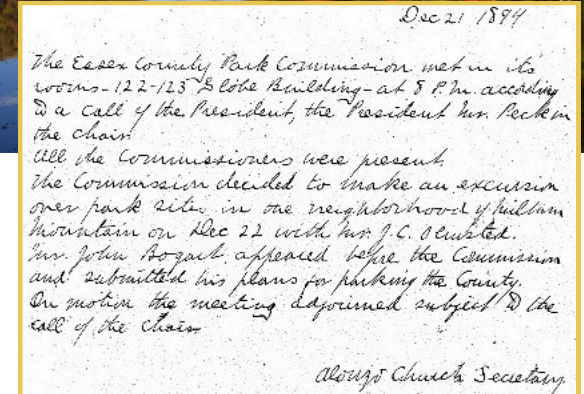 Dec 21 1894
The Essex County Park Commission met in its
rooms - 122-123 Globe Building - at 8 P.M. according
to a call of the President, the President Mr. Peck in
the chair.
All the Commissioners were present.
The Commission decided to make an excursion
over park sites in one neighborhood of
Mountain on Dec 22 with Mr. J. C. Olmsted.
Mr. John Bogart appeared before the Commission
and submitted his plans for parking the County.
On motion the meeting adjourned subject to the
call of the chair
Alonzo Church Secretary